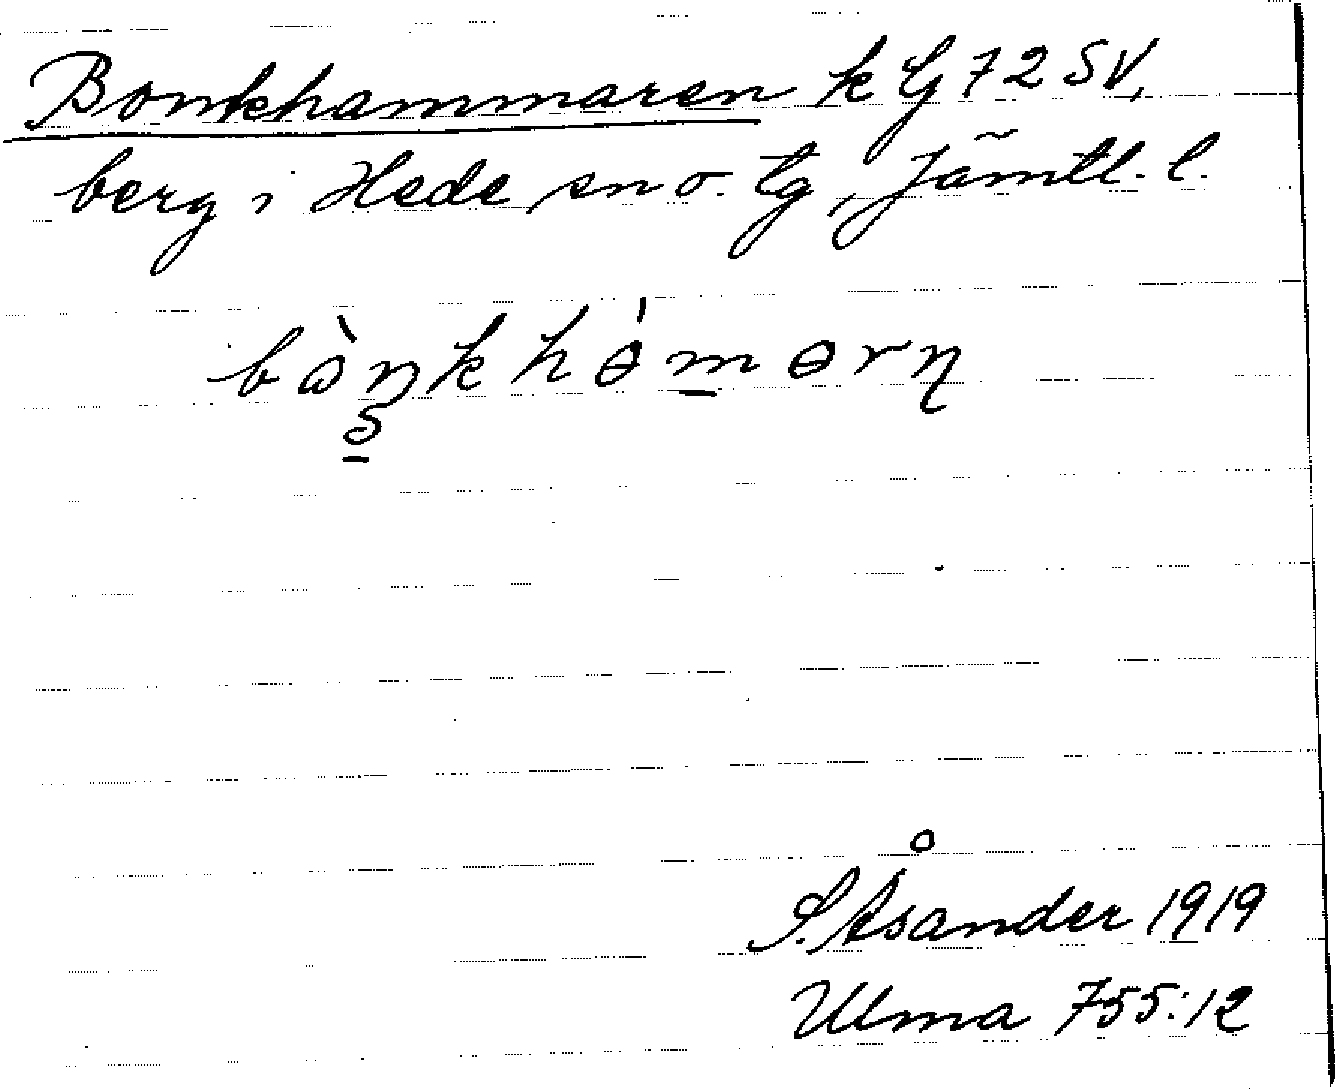 Bonkhammaren k G 72 SV,
berg i Hede sn o. tg, Jämtl. l.
bàŋkhámarn
S. Åsander 1919
Ulma 755:12